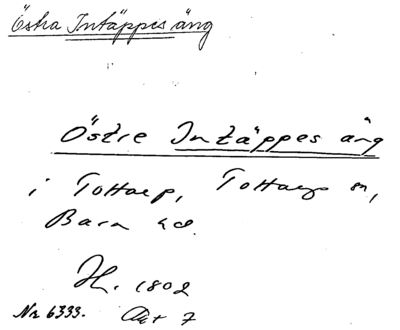 Östra Intäppes äng
Östre Intäppes äng
i Tottarp, Tottarps sn,
Bara hd.
H. 1802
Nr 6333. Akt 7